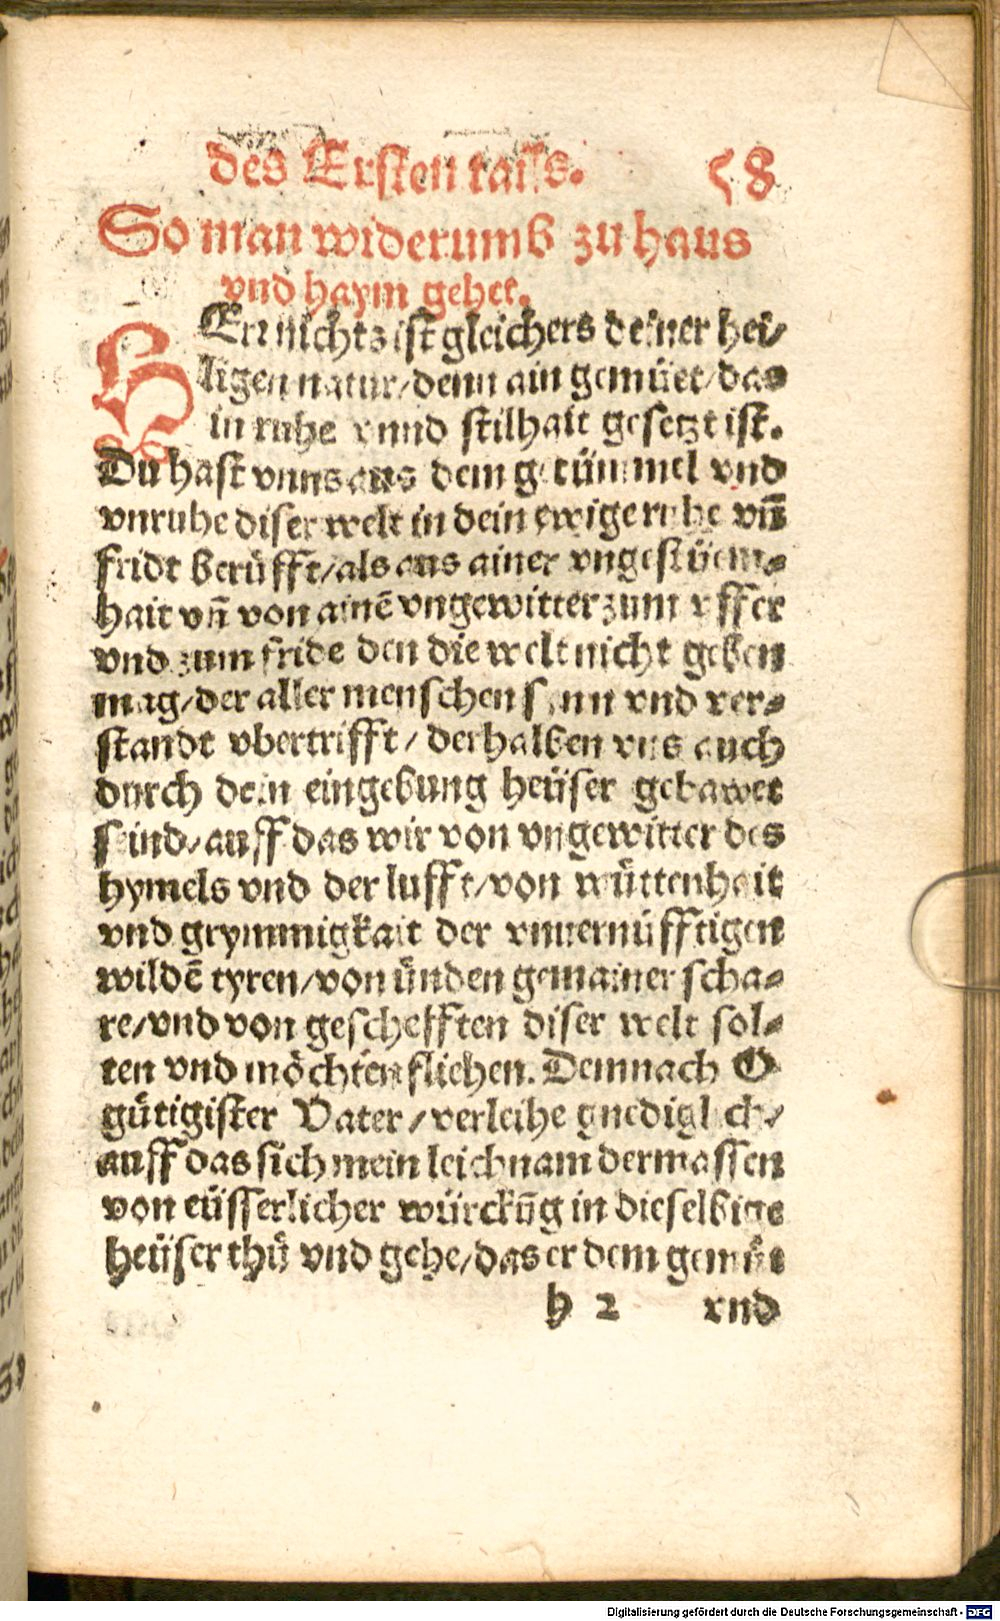 des Ersten tails. 58
So man widerumb zu haus
vnd haym gehet.
HErr nichtz ist gleichers deiner hei/
ligen natur/denn ain gemüet/das
in ruhe vnnd stilhait gesetzt ist.
Du hast vnns aus dem getümmel vnd
vnruhe diser welt in dein ewige ruhe vn̄
fridt berüfft/als aus ainer vngestüem⸗
hait vn̄ von ainē vngewitter zum vffer
vnd zum fride den die welt nicht geben
mag/der aller menschen sinn vnd ver⸗
standt vbertrifft/ derhalben vns auch
durch dein eingebung heüser gebawet
seind/auff das wir von vngewitter des
hymels vnd der lufft/von wüttenhait
vnd grymmigkait der vnuernüfftigen
wildē tyren/von ünden gemainer scha⸗
re/vnd von geschefften diser welt sol⸗
ten vnd möchten fliehen. Demnach O
gütigister Vater/verleihe gnediglich/
auff das sich mein leichnam dermassen
von eüsserlicher würckūg in dieselbige
heüser thů vnd gehe/das er dem gemüt
h 2 vnd
Digitalisierung gefördert durch die Deutsche Forschungsgemeinschaft - DFG